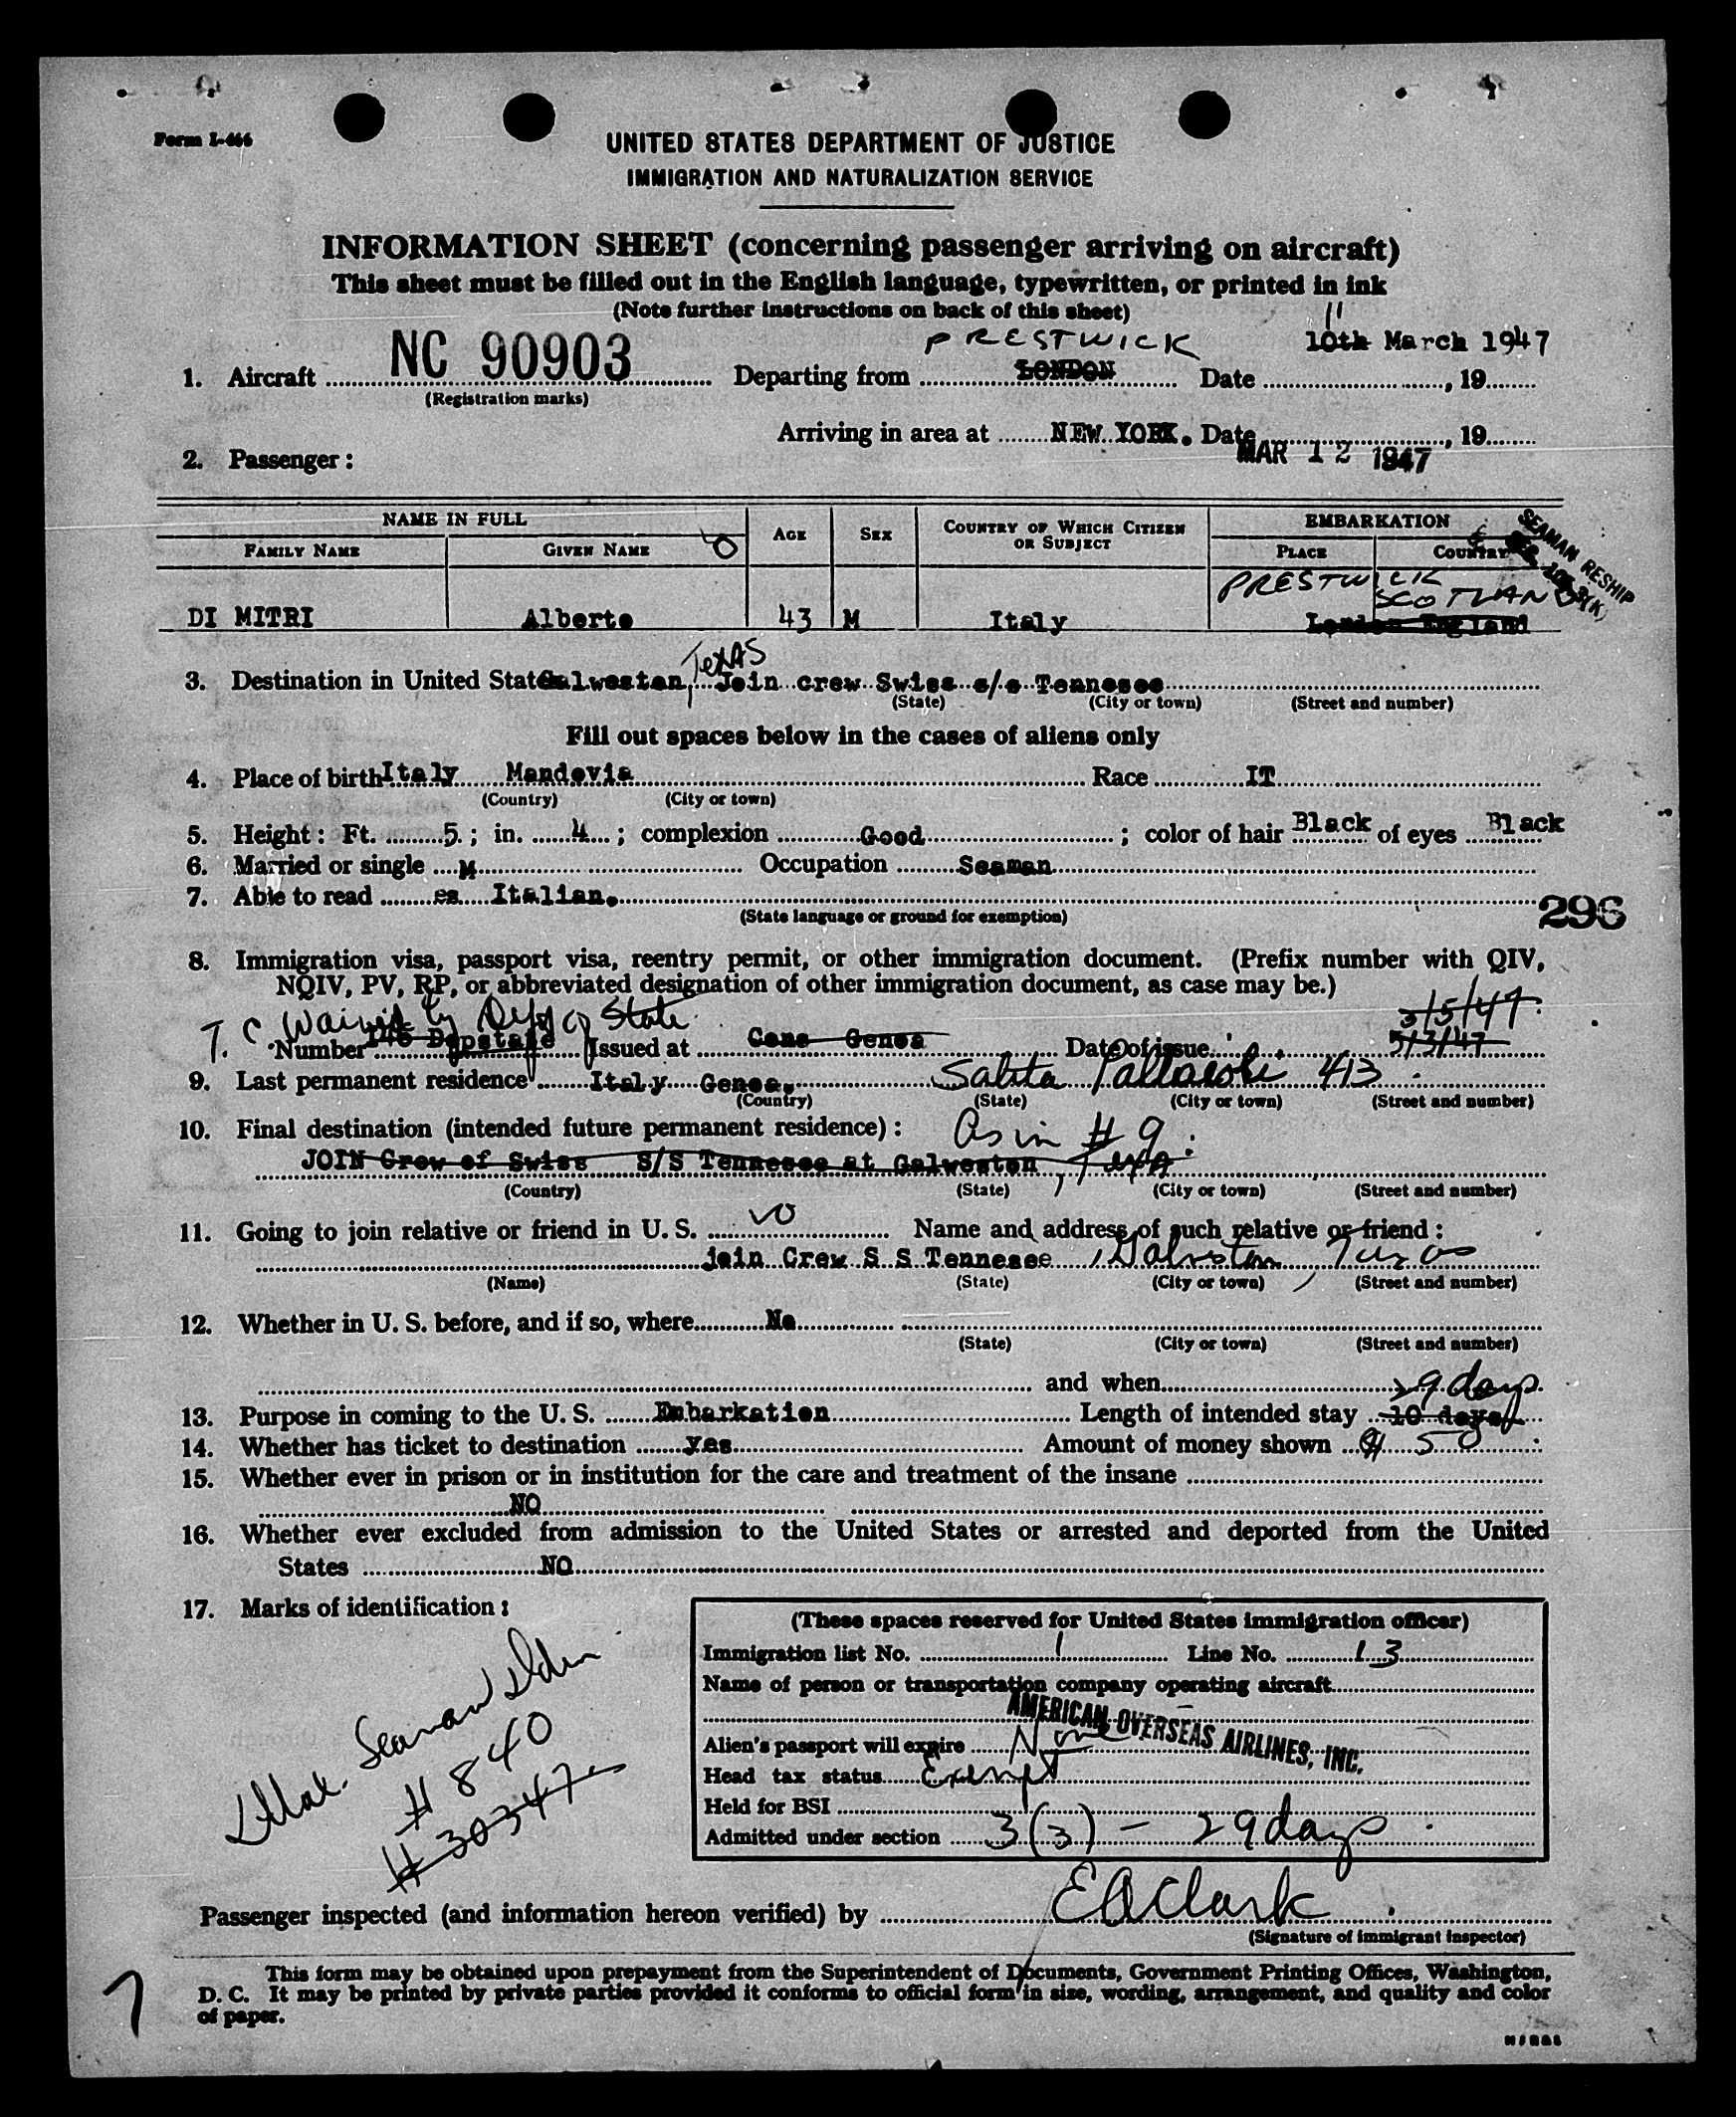 Form I-466
UNITED STATES DEPARTMENT OF JUSTICE
IMMIGRATION AND NATURALIZATION SERVICE
INFORMATION SHEET (concerning passenger arriving on aircraft)
This sheet must be filled out in the English language, typewritten, or printed in ink
(Note further instructions on back of this sheet)
PRESTWICK 11
1. Aircraft NC 90903 Departing from LONDON Date 10th March 1947, 19
(Registration marks)
Arriving in area at NEW YORK. Date MAR 12 1947, 19
2. Passenger:
NAME IN FULL AGE SEX COUNTRY OF WHICH CITIZEN OR SUBJECT EMBARKATION
FAMILY NAME GIVEN NAME PLACE COUNTRY
SEAMAN RESHIP
PRESTWICK SCOTLAND
DI MITRI Alberto 43 M Italy London England
Texas
3. Destination in United States Galweston, Join crew Swiss s/s Tennesee
(State) (City or town) (Street and number)
Fill out spaces below in the cases of aliens only
4. Place of birth Italy Mandovia Race IT
(Country) (City or town)
5. Height: Ft. 5; in. 4; complexion Good; color of hair Black of eyes Black
6. Married or single M Occupation Seaman
7. Able to read es Italian.
(State language or ground for exemption)
296
8. Immigration visa, passport visa, reentry permit, or other immigration document. (Prefix number with QIV,
NQIV, PV, RP, or abbreviated designation of other immigration document, as case may be.)
T. C Waived by Dept of State 3/5/47
Number Issued at Genoa Date of issue 5/3/47
9. Last permanent residence Italy Genoa. Salita 413
(Country) (State) (City or town) (Street and number)
10. Final destination (intended future permanent residence): As in #9.
JOIN Crew of Swiss S/S Tennesee at Galweston, Texas
(Country) (State) (City or town) (Street and number)
11. Going to join relative or friend in U. S. no Name and address of such relative or friend:
join Crew S S Tennesee, Galveston, Texas
(Name) (State) (City or town) (Street and number)
12. Whether in U. S. before, and if so, where No
(State) (City or town) (Street and number)
and when
29 days.
13. Purpose in coming to the U. S. Embarkation Length of intended stay 10 days
14. Whether has ticket to destination yes Amount of money shown $ 50
15. Whether ever in prison or in institution for the care and treatment of the insane
NO
16. Whether ever excluded from admission to the United States or arrested and deported from the United
States NO
17. Marks of identification:
Seaman Iden
# 840
# 30347
(These spaces reserved for United States immigration officer)
Immigration list No. 1 Line No. 13
Name of person or transportation company operating aircraft
AMERICAN OVERSEAS AIRLINES, INC.
Alien's passport will expire None
Head tax status Exempt
Held for BSI
Admitted under section 3(3) - 29 days.
Passenger inspected (and information hereon verified) by EAClark
(Signature of immigrant inspector)
This form may be obtained upon prepayment from the Superintendent of Documents, Government Printing Offices, Washington,
D. C. It may be printed by private parties provided it conforms to official form in size, wording, arrangement, and quality and color
of paper.
7